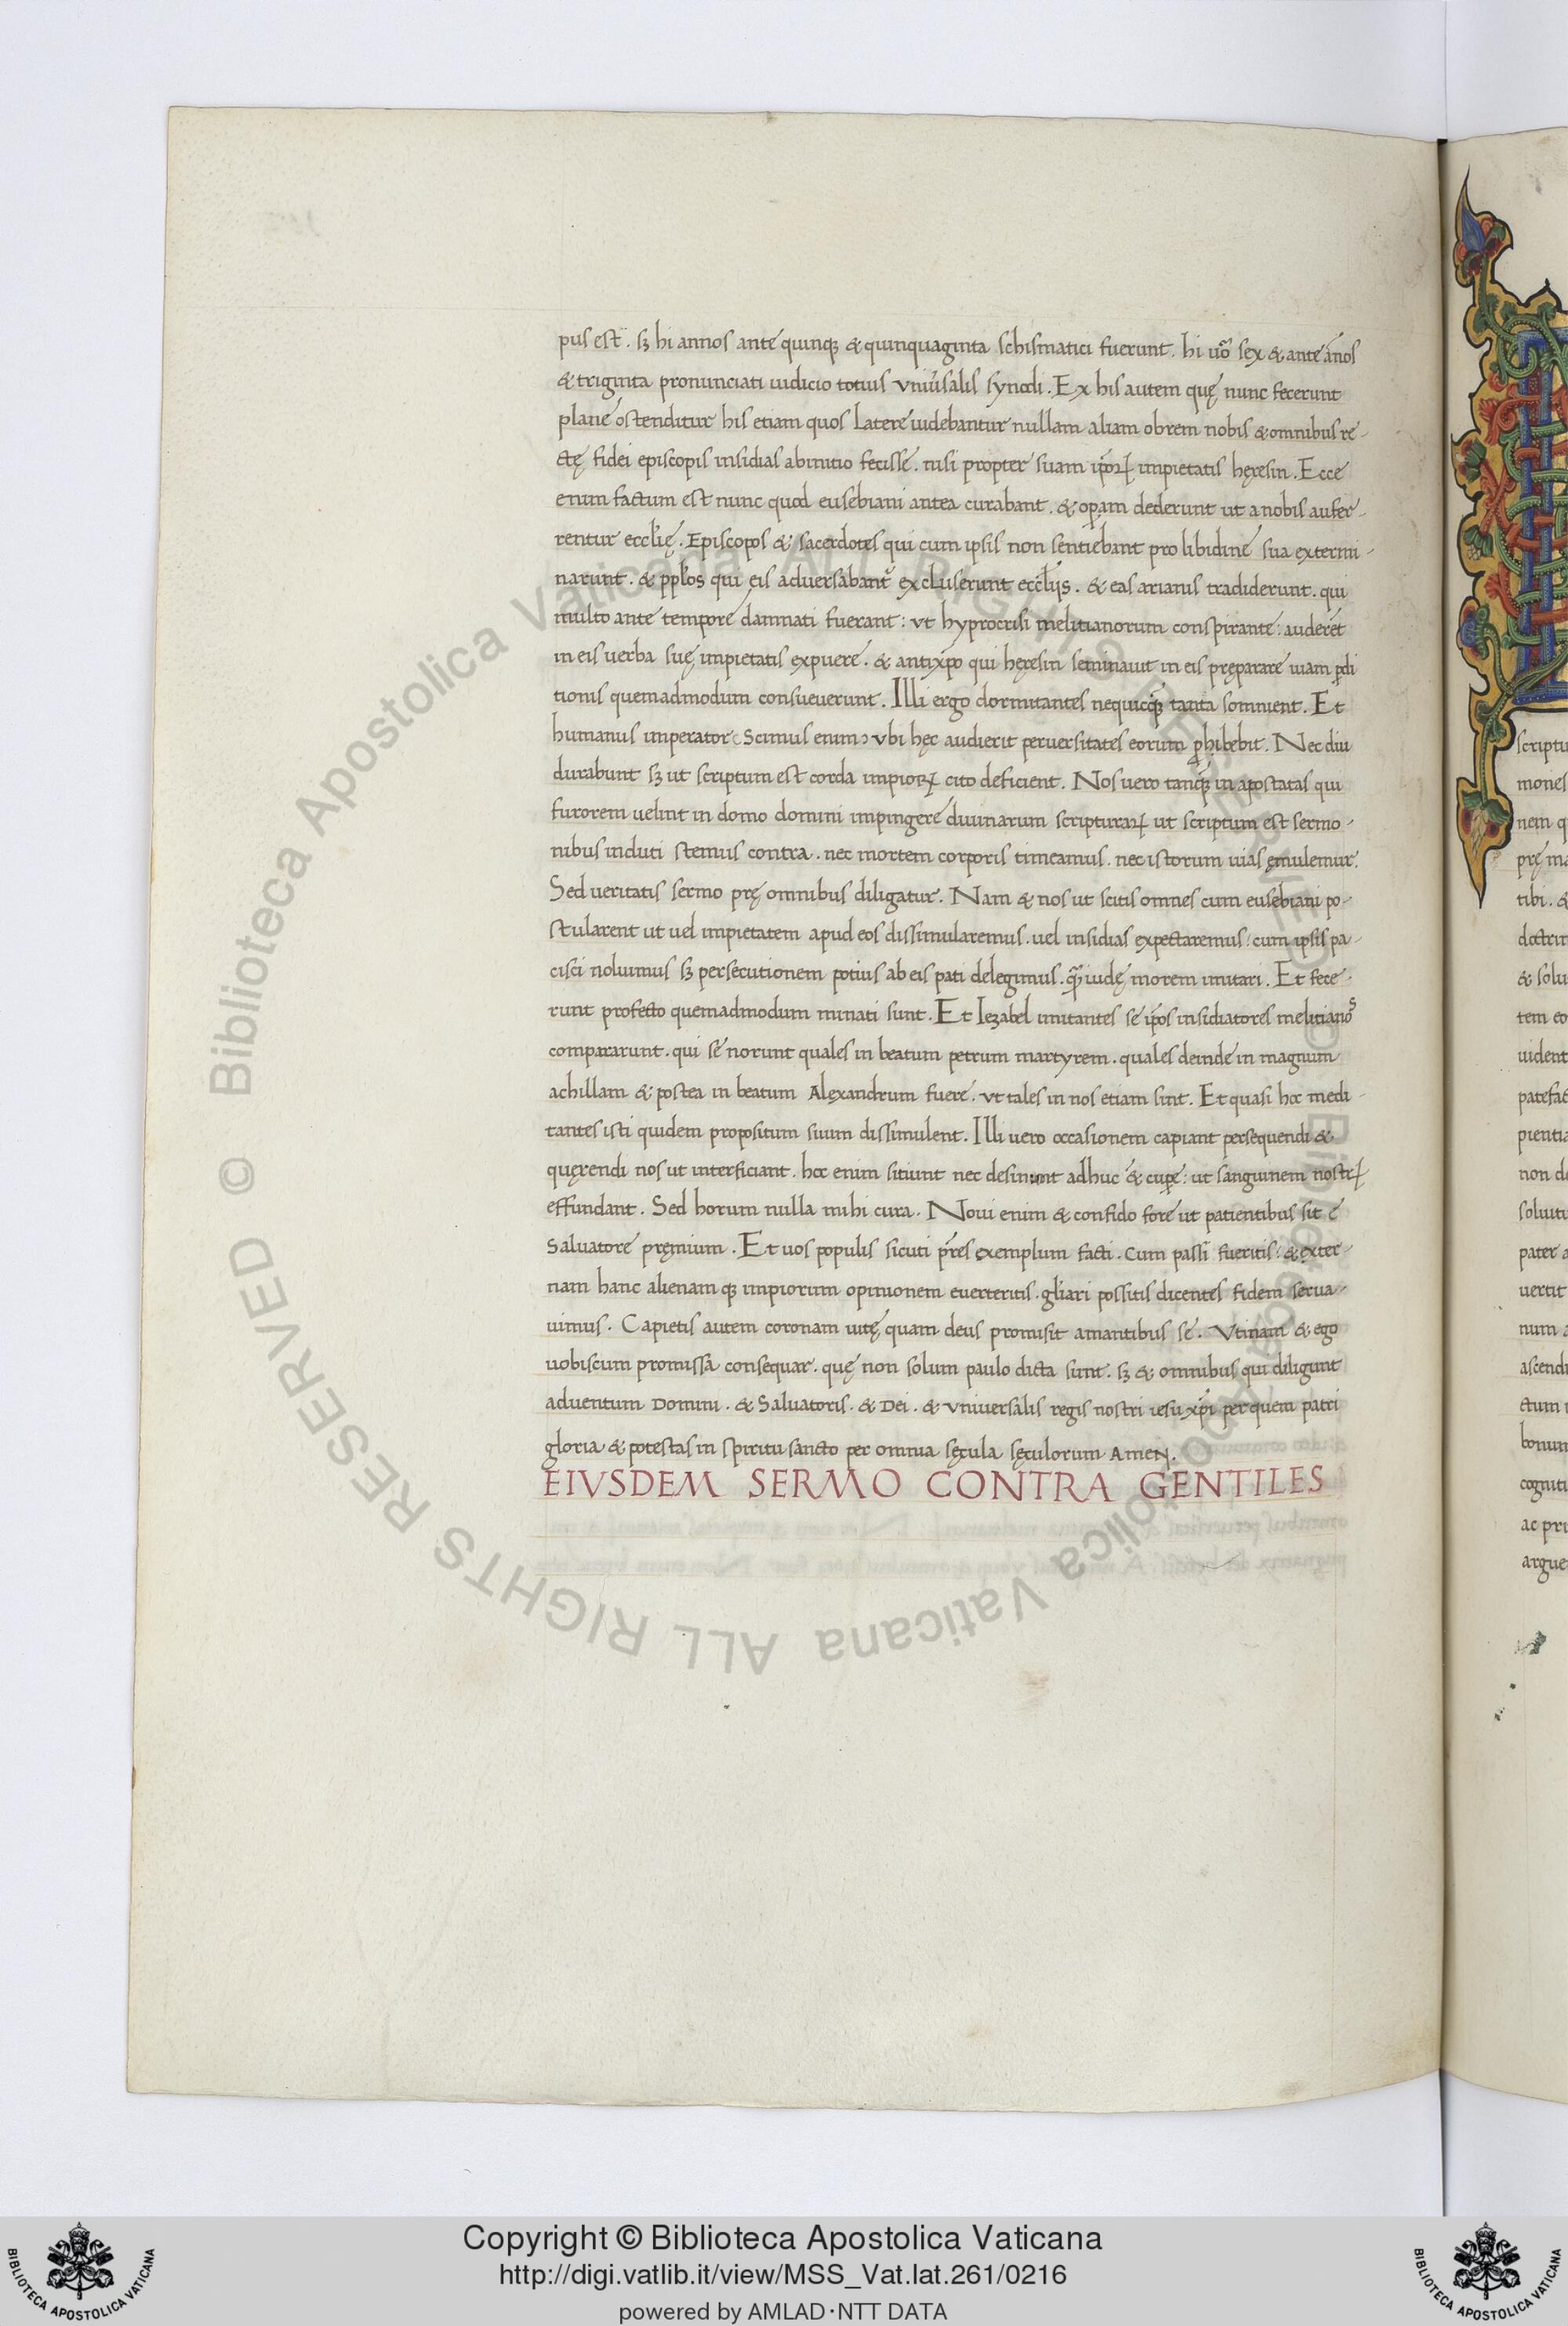 pus est. sꝫ hi annos ante quinqꝫ & quinquaginta schismatici fuerunt. hi uo᷒ sex & ante ānos
& triginta pronunciati iudicio totius vniu͛salis synodi. Ex his autem quę nunc fecerunt
plane ostenditur his etiam quos latere uidebantur nullam aliam obrem nobis & omnibus re-
ctę fidei episcopis insidias abinitio fecisse. nisi propter suam ip̄oꝝ impietatis hęresin. Ecce
enim factum est nunc quod eusebiani antea curabant. & oꝑam dederunt ut a nobis aufer-
rentur eccl̄ię. Episcopos & sacerdotes qui cum ipsis non sentiebant pro libidine sua extermi-
narunt. & pp̄los qui eis adversabant᷑ excluserunt eccl̄ijs. & eas arianis tradiderunt. qui
multo ante tempore damnati fuerant: vt hyprocrisi melitianorum conspirante: auderēt
in eis uerba suę impietatis expuere. & antixp̄o qui hęresin seminauit in eis pręparare uiam ꝑdi
tionis quemadmodum consueuerunt. Illi ergo dormitantes nequicq̄ꝫ tanta somnient. Et
humanus imperator (scimus enim) vbi hęc audierit peruersitates eorum ꝓhibebit. Nec diu
durabunt sꝫ ut scriptum est corda impioꝝ cito deficient. Nos uero tanq̄ꝫ in apostatas qui
furorem uelint in domo domini impingere diuinarum scripturaꝝ ut scriptum est sermo-
nibus induti stemus contra. nec mortem corporis timeamus. nec istorum uias ęmulemur.
Sed ueritatis sermo prę omnibus diligatur. Nam & nos ut scitis omnes cum eusebiani po-
stularent ut uel impietatem apud eos dissimularemus. uel insidias expectaremus: cum ipsis pa-
cisci noluimus sꝫ persecutionem potius ab eis pati delegimus. q̄ꝫ iudę morem imitari. Et fece-
runt profecto quemadmodum minati sunt. Et Iezabel imitantes se ip̄os insidiatores melitianos
compararunt. qui se norunt quales in beatum petrum martyrem. quales deinde in magnum
achillam & postea in beatum Alexandrum fuere. vt tales in nos etiam sint. Et quasi hoc medi-
tantes isti quidem propositum suum dissimulent. Illi uero occasionem capiant persequendi &
quęrendi nos ut interficiant. hoc enim sitiunt nec desinunt adhuc & cuꝑe: ut sanguinem nostꝝ
effundant. Sed horum nulla mihi cura. Noui enim & confido fore ut patientibus sit e
Salvatore pręmium. Et uos populis sicuti p̄res exemplum facti. Cum passi fueritis: & exter-
nam hanc alienamqꝫ impiorum opinionem euerteritis. gl̄iari possitis dicentes fidem serua-
uimus. Capietis autem coronam uitę quam deus promisit amantibus se. Vtinam & ego
uobiscum promissa consequar. quę non solum paulo dicta sunt. sꝫ & omnibus qui diligunt
adventum Domini. & Salvatoris. & Dei. & vniuersalis regis nostri iesu xp̄i per quem patri
gloria & potestas in spiritu sancto per omnia sęcula sęculorum Amen.
EIVSDEM SERMO CONTRA GENTILES
scriptu
mones
nem q
prę ma
tibi. &
doctrin
& solu
tem eo
uident
patefac
pientia
non d
soluitu
pater a
uertit
num a
ascendi
ctum
bonum
cogniti
ac pri
argue
© Biblioteca Apostolica Vaticana ALL RIGHTS RESERVED © Biblioteca Apostolica Vaticana ALL RIGHTS RESERVED
Copyright © Biblioteca Apostolica Vaticana
http://digi.vatlib.it/view/MSS_Vat.lat.261/0216
powered by AMLAD·NTT DATA
BIBLIOTECA APOSTOLICA VATICANA
BIBLIOTECA APOSTOLICA VATICANA